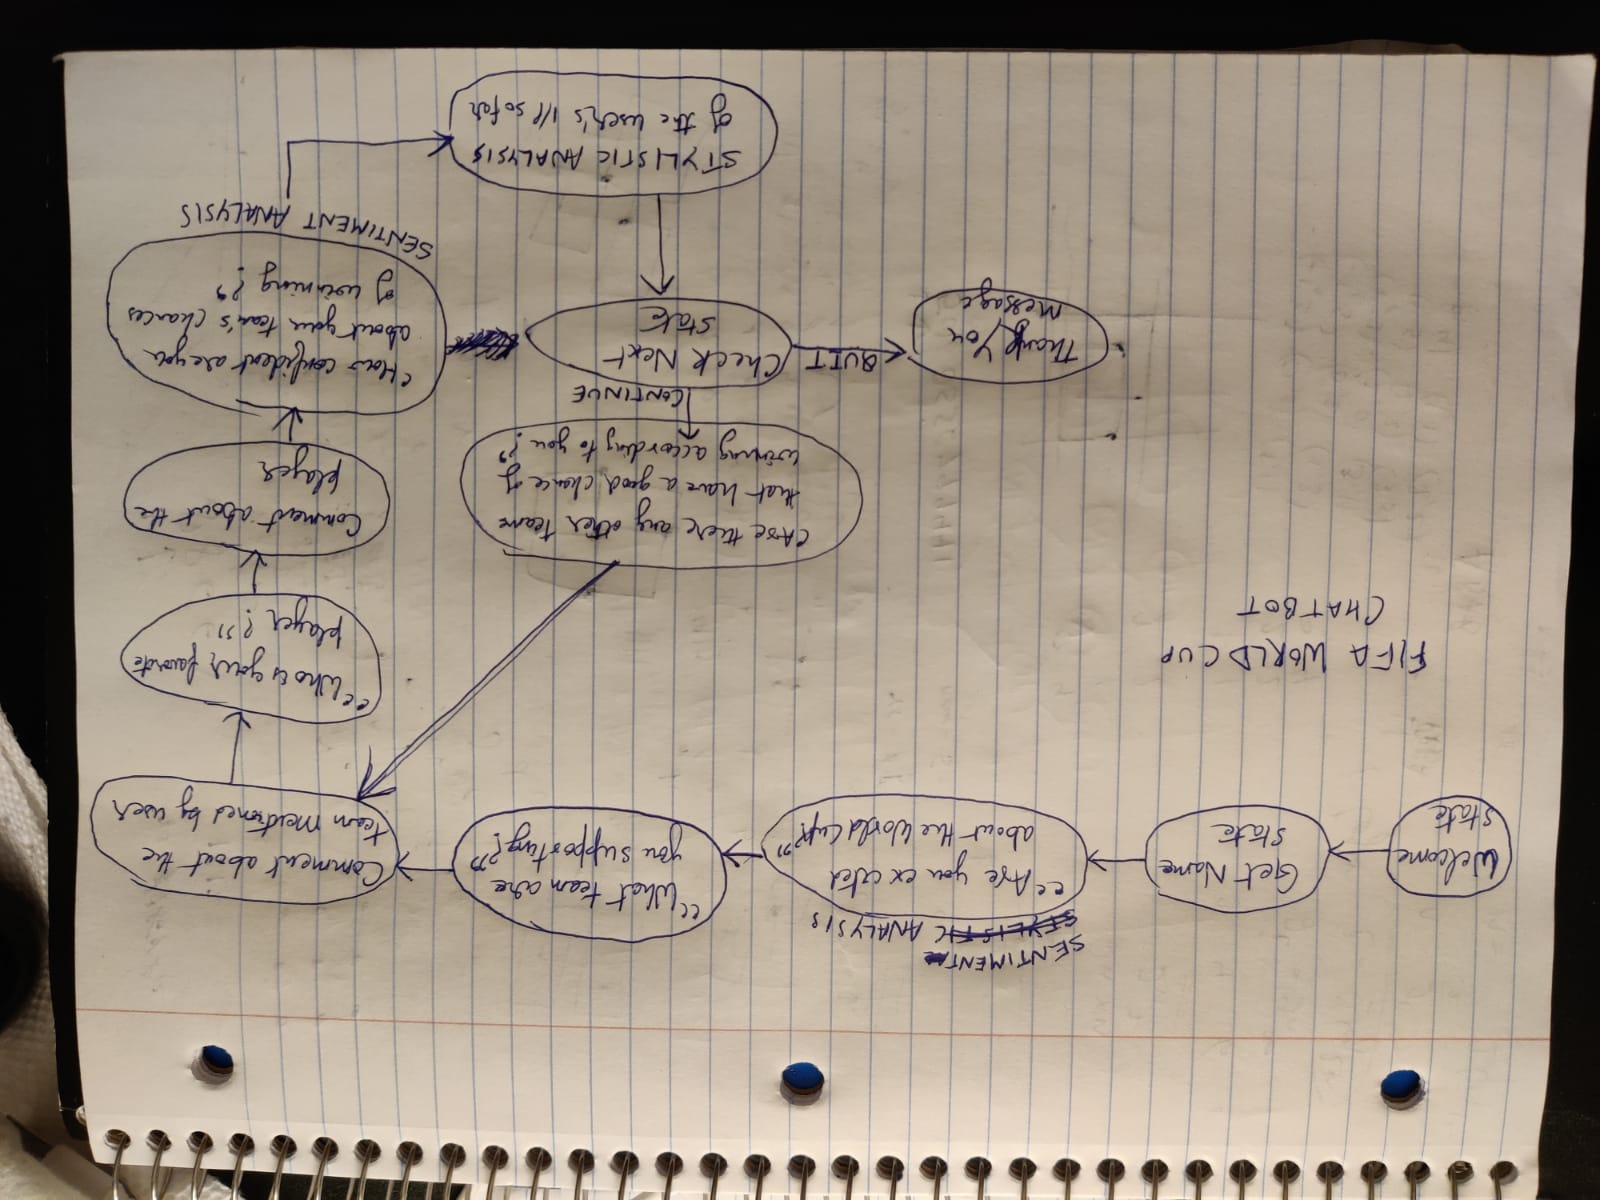 SENTIMENT
STYLISTIC ANALYSIS
Welcome
state
Get Name
state
“Are you excited
about the World Cup?”
“What team are
you supporting?”
Comment about the
team mentioned by user
“Who is your favorite
player?”
Comment about the
player
‘How confident are you
about your team's chances
of winning?’
SENTIMENT ANALYSIS
STYLISTIC ANALYSIS
of the user's I/P so far
Check Next
state
CONTINUE
‘Are there any other teams
that have a good chance of
winning according to you?’
QUIT
Thank You
message
FIFA WORLD CUP
CHATBOT